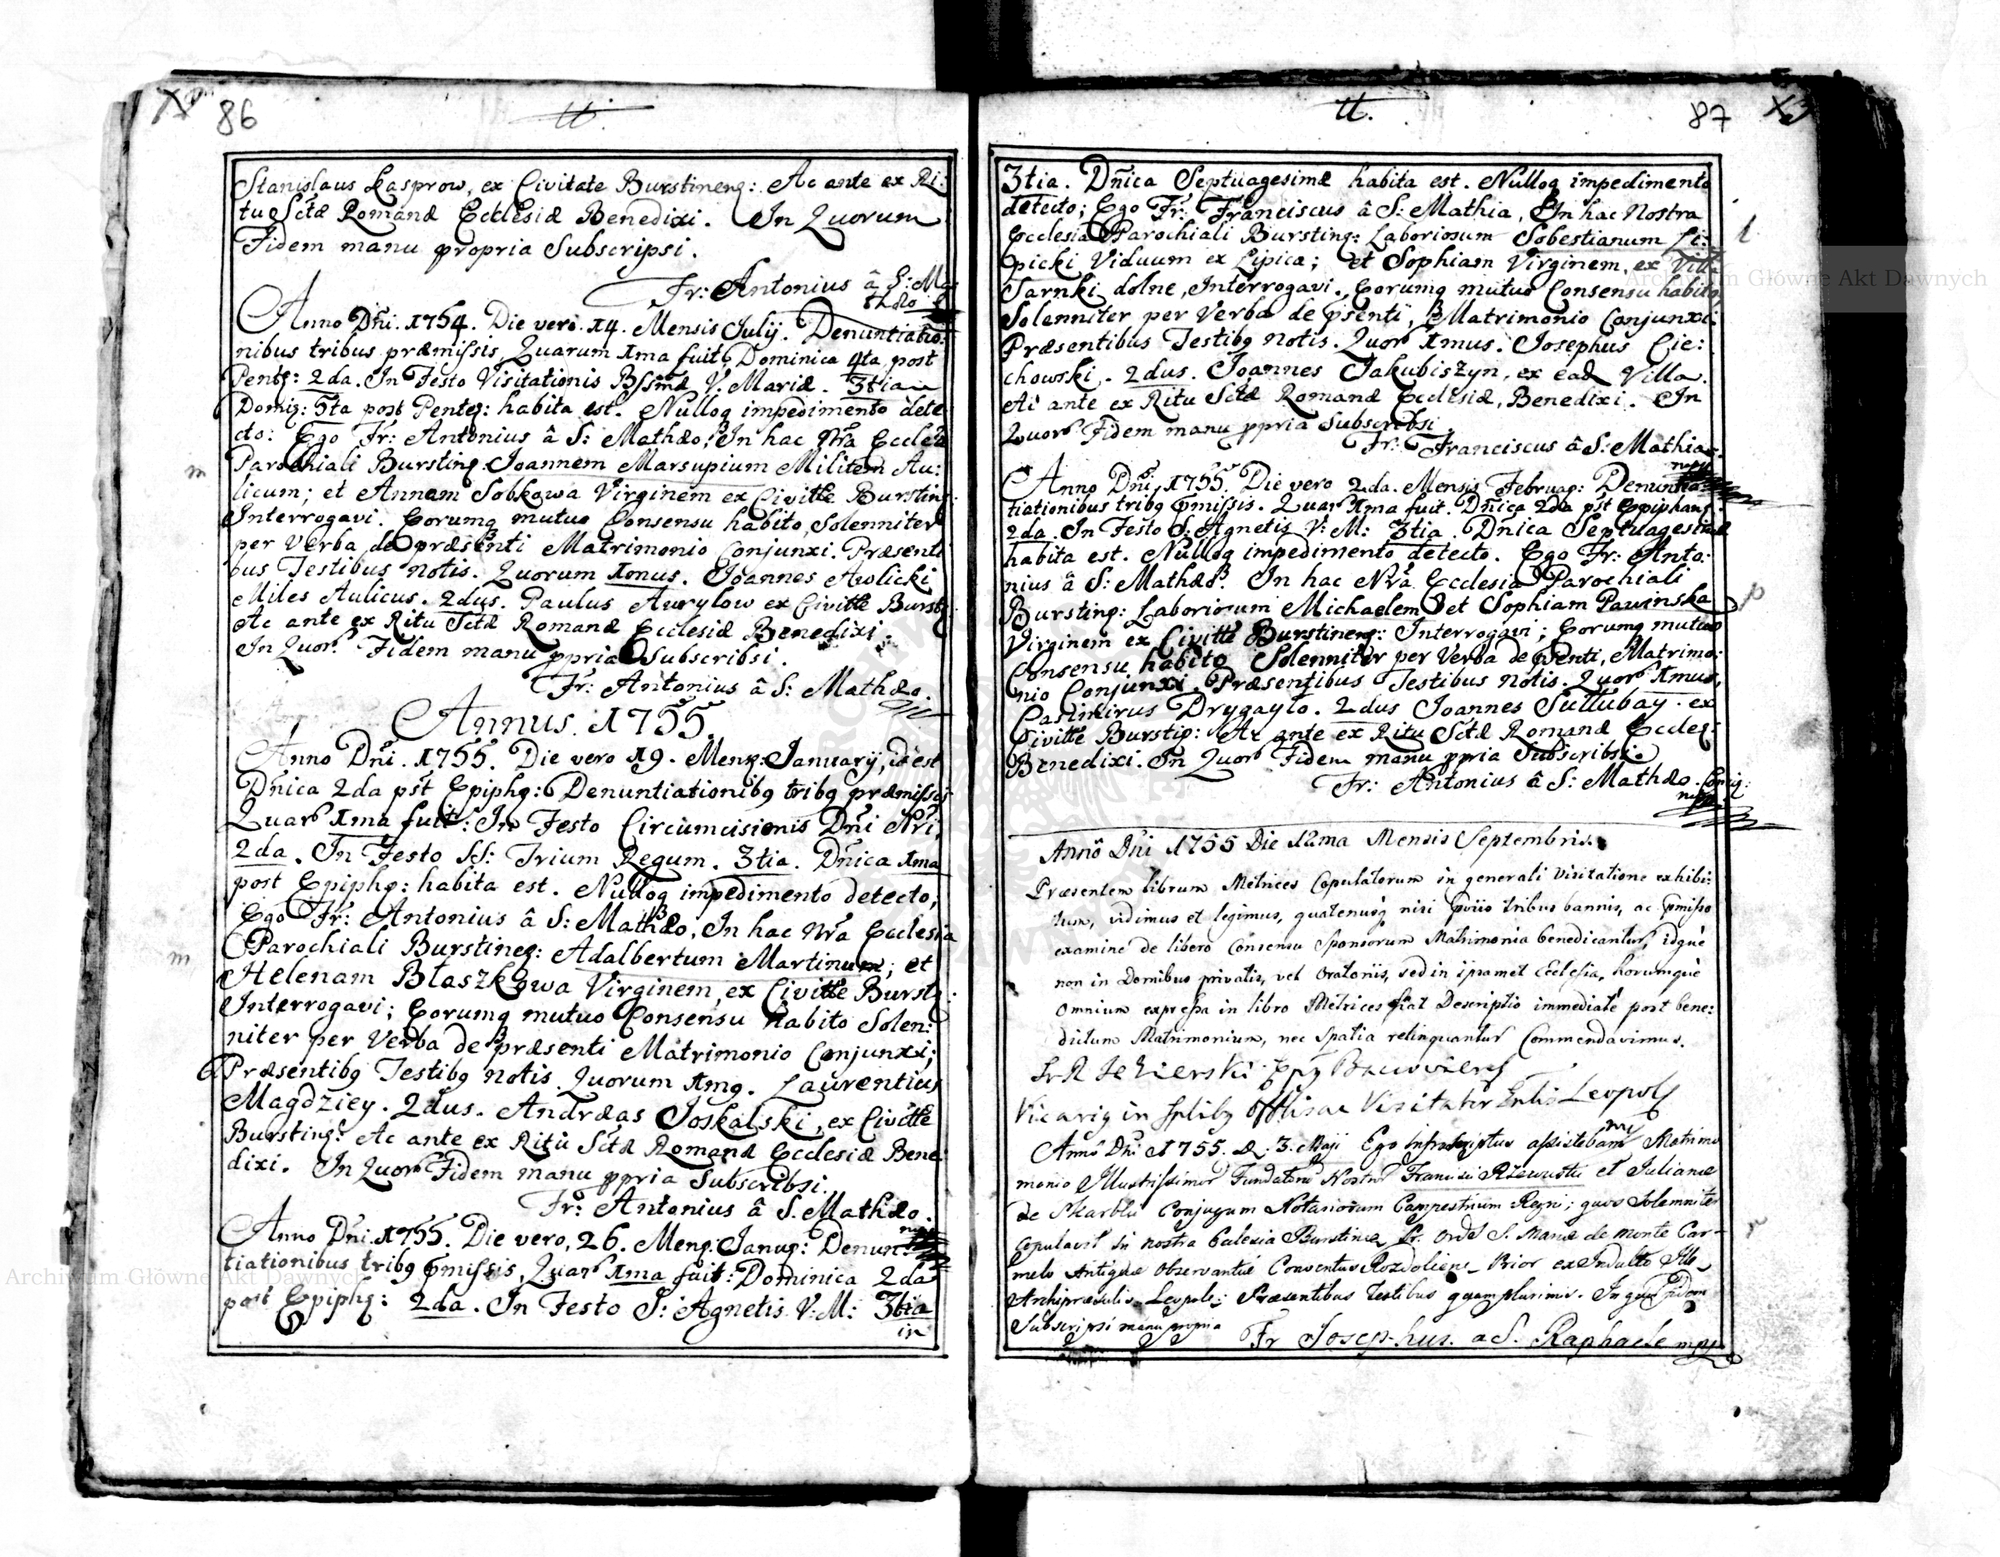 86
Stanislaus Kasprow, ex Civitate Burstineng: Ac ante ex Ri:
tu Sctæ Romanæ Ecclesiæ Benedixi. In Quorum
Fidem manu propria Subscripsi.
Fr: Antonius â S: Ma
thæo
Anno Dñi. 1754. Die vero. 14. Mensis Julij. Denuntiatio:
nibus tribus præmissis Quarum 1ma fuit, Dominica 4ta post
Penteg: 2da. In Festo Visitationis Bssmæ V. Mariæ. 3tia
Doming: 5ta post Penteg: habita est. Nullog impedimento dete
cto: Ego Fr: Antonius â S: Mathæo, In hac Nrã Ecclesia
m Parochiali Bursting Joannem Marsupium Militem Au:
licum; et Annam Sobkowa Virginem ex Civitte Bursting:
Interrogavi. Eorumq mutuo Consensu habito, Solenniter
per Verba de præsenti Matrimonio Conjunxi. Præsenti
bus Testibus notis. Quorum 1mus. Joannes Awlicki
Miles Aulicus. 2dus. Paulus Aurylow ex Civitte Burstg:
Ac ante ex Ritu Sctæ Romanæ Ecclesiæ Benedixi.
In Quor. Fidem manu ppria Subscribsi.
Fr: Antonius â S: Mathæo.
Annus. 1755.
Anno Dñi. 1755. Die vero 19. Meng: January, id est
Dñica 2da pst Epiphg: Denuntiationibg tribg præmissis
Quar 1ma fuit: In Festo Circumcisionis Dñi Nri,
2da. In Festo SS: Trium Regum. 3tia. Dñica 1ma
post Epiphg: habita est. Nullog impedimento detecto,
Ego Fr: Antonius â S: Mathæo, In hac Nrã Ecclesia
Parochiali Burstineg: Adalbertum Martinum; et
m Helenam Błaszkowa Virginem, ex Civitte Burstg:
Interrogavi; Eorumq mutuo Consensu habito Solen:
niter per Verba de præsenti Matrimonio Conjunxi;
Præsentibg Testibg notis. Quorum 1mg. Laurentius
Magdziey. 2dus. Andræas Joskalski, ex Civitte
Bursting: Ac ante ex Ritu Sctæ Romanæ Ecclesiæ Bene
dixi. In Quor Fidem manu ppria Subscribsi.
Fr: Antonius â S. Mathæo.
Anno Dñi. 1755. Die vero, 26. Meng: Janug: Denun:
tiationibus tribg pmissis, Quar 1ma fuit: Dominica 2da
post Epiphg: 2da. In Festo S: Agnetis V: M: 3tia
in
87
3tia. Dñica Septuagesimæ habita est. Nullog impedimento
detecto; Ego Fr: Franciscus â S: Mathia, In hac Nostra
Ecclesia Parochiali Bursting: Laboriosum Sobestianum Li:
picki Viduum ex Lipica; et Sophiam Virginem, ex Villa
Sarnki dolne, Interrogavi. Eorumq mutuo Consensu habito
Solenniter per Verba de psenti, Matrimonio Conjunxi:
Præsentibus Testibg notis. Quor 1mus. Josephus Cie:
chowski. 2dus. Joannes Jakubiszyn, ex ead Villa.
Ac ante ex Ritu Sctæ Romanæ Ecclesiæ, Benedixi. In
Quor Fidem manu ppria Subscribsi.
Fr: Franciscus â S: Mathia.
Anno Dñi. 1755. Die vero 2da. Mensis Februag: Denuntia
tiationibus tribg pmissis. Quar 1ma fuit. Dñica 2da pst Epiphang:
2da. In Festo S: Agnetis V: M: 3tia. Dñica Septuagesimæ
habita est. Nullog impedimento detecto. Ego Fr: Anto:
nius â S: Mathæo. In hac Nrã Ecclesia Parochiali
Bursting: Laboriosum Michaelem et Sophiam Pawinska p
Virginem ex Civitte Burstineng: Interrogavi; Eorumq mutuo
Consensu habito Solenniter per Verba de psenti, Matrimo:
nio Conjunxi. Præsentibus Testibus notis. Quor 1mus,
Casimirus Drygayło. 2dus Joannes Sullubay. ex
Civitte Burstig: Ac ante ex Ritu Sctæ Romanæ Eccleg:
Benedixi. In Quor Fidem manu ppria Subscribsi
Fr: Antonius â S: Mathæo.
Anno Dñi 1755 Die 12ma Mensis Septembris.
Præsentem librum Metrices Copulatorum in generali Visitatione exhibi:
tum, vidimus et legimus, quatenusq nisi tribus bannis, ac pmisso
examine de libero Consensu Sponsorum Matrimonia benedicantur, idque
non in Domibus privatis, vel Oratoriis, sed in ipsamet Ecclesia, horumque
omnium expressa in libro Metrices fiat Descriptio immediate post bene:
dictum Matrimonium, nec Spatia relinquantur Commendavimus.
Vicarig in Visitator Leopols
Anno Dñi 1755. D. 3. Maji Ego Infrascriptus assistebam Matrimo
monio Illustrissimor Fundator Nostror Francisci Rzewuski et Julianæ
de Skarbki Conjugum Notariorum Campestrium Regni; quos Solemniter
Copulavit in nostra Eclesia Burstinæ Fr. Ordis S. Mariæ de monte Car-
melo Antiquæ Observantiæ Conventus Rozdoliens Prior ex Indulto Ille
Archipræsulis Leopols: Præsentibus Testibus quamplurimis. In quor Fidem
Subscripsi manu propria Fr Josephus. a S. Raphaele mpp
Archiwum Główne Akt Dawnych
Archiwum Główne Akt Dawnych